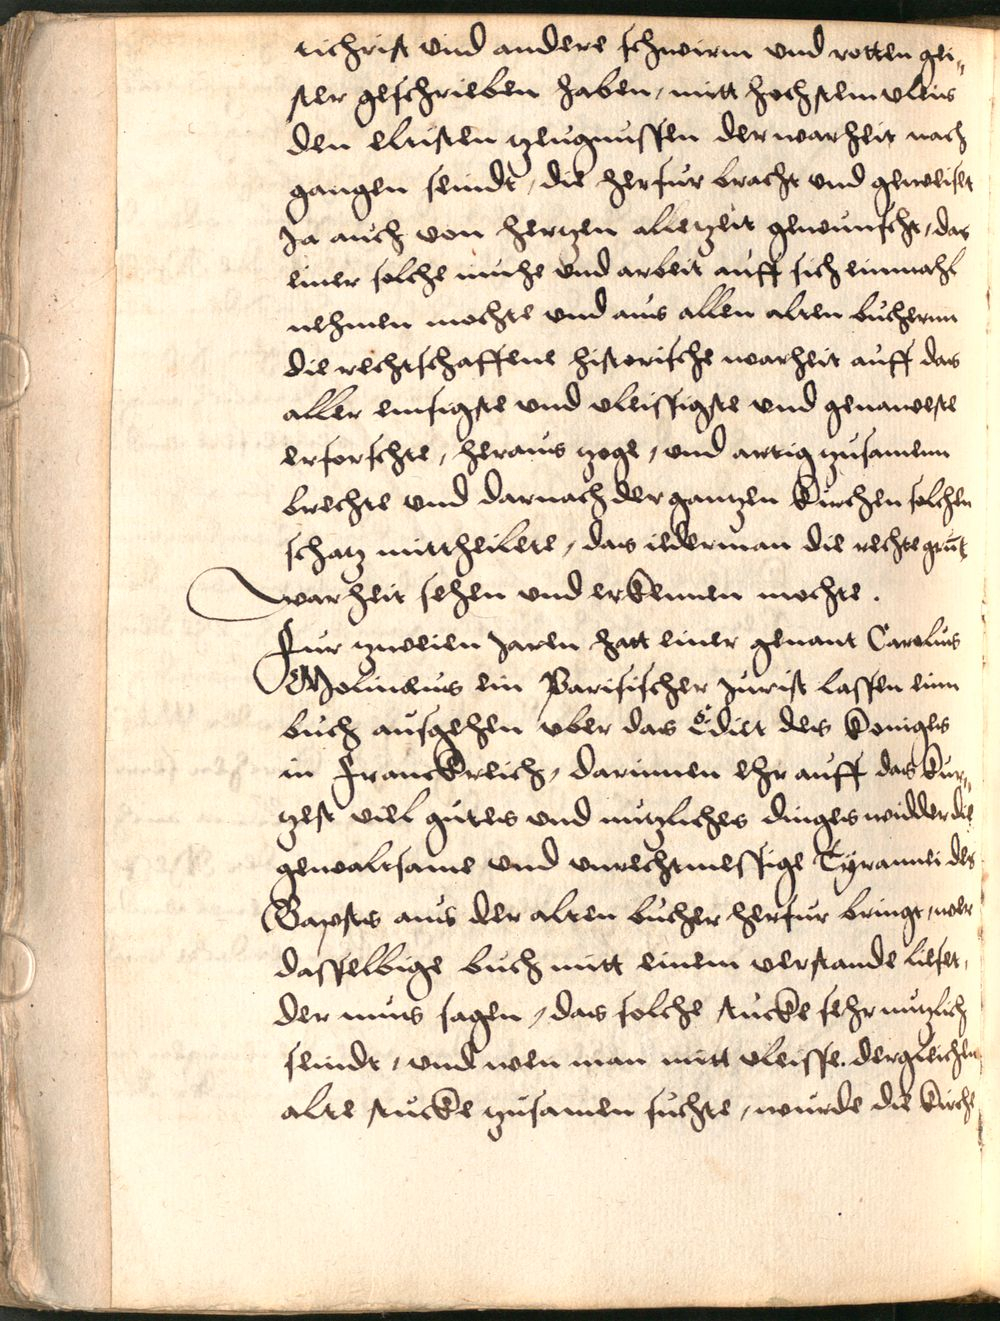 tichrist vnd andere schwirm vnd rotten gei-
ster geschrieben haben, mitt hochstem vleis
den eltisten zeugnussen der warheit nach
gangen seindt, die herfur bracht vnd geweiset
Ja auch von hertzen alletzeit gewunscht, das
einer solche muhe vnd arbeit auff sich einmahl
nehmen mochte vnd aus allen alten buchernn
die rechtschaffene historische warheit auff das
aller emsigste vnd vleissigste vnd genaweste
erforschte, heraus zoge, vnd artig zusamenn
brechte vnd darnach der gantzen kirchen solchen
schatz mittheilete, das iderman die rechte
warheit sehen vnd erkennen mochte.
Fur zweien Jaren hatt einer genant Carolus
Molinaeus ein Parisischer Jurist lassen einn
buch ausgehen vber das Edict des koniges
in Franckreich, darinnen ehr auff das kur-
tzest viel gutes vnd nutzliches dinges widder die
gewaltsame vnd vnrechtmessige Tyrannei des
Bapsts aus der alten bucher herfur bringt, wer
dasselbige buch mitt einem verstande lieset,
der mus sagen, das solche stucke sehr nutzlich
seindt, vnd wen man mitt vleisse dergleichen
alte stucke zusamen suchte, wurde die kirche